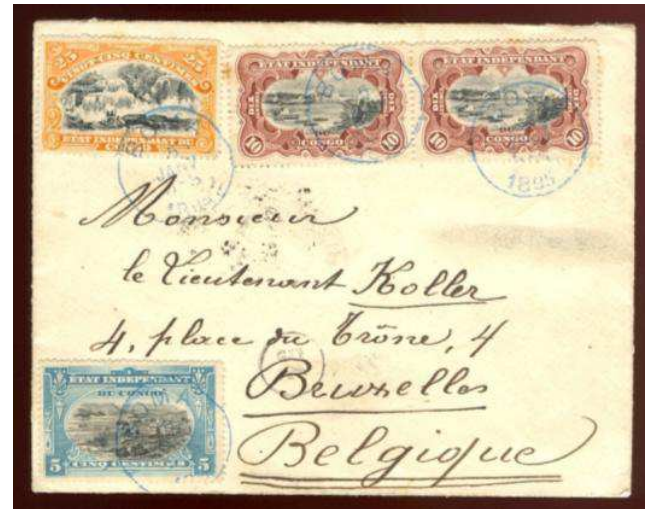 25 VINGT CINQ CENTIMES 25
ETAT INDEPENDANT DU
ETAT INDEPENDANT
DIX DIX
10 CONGO 10
ETAT INDEPENDANT
DIX DIX
10 CONGO 10
1895
Monsieur
le Lieutenant Koller
4, place du Trône, 4
Bruxelles
Belgique
ETAT INDEPENDANT
DU CONGO
5 CINQ CENTIMES 5